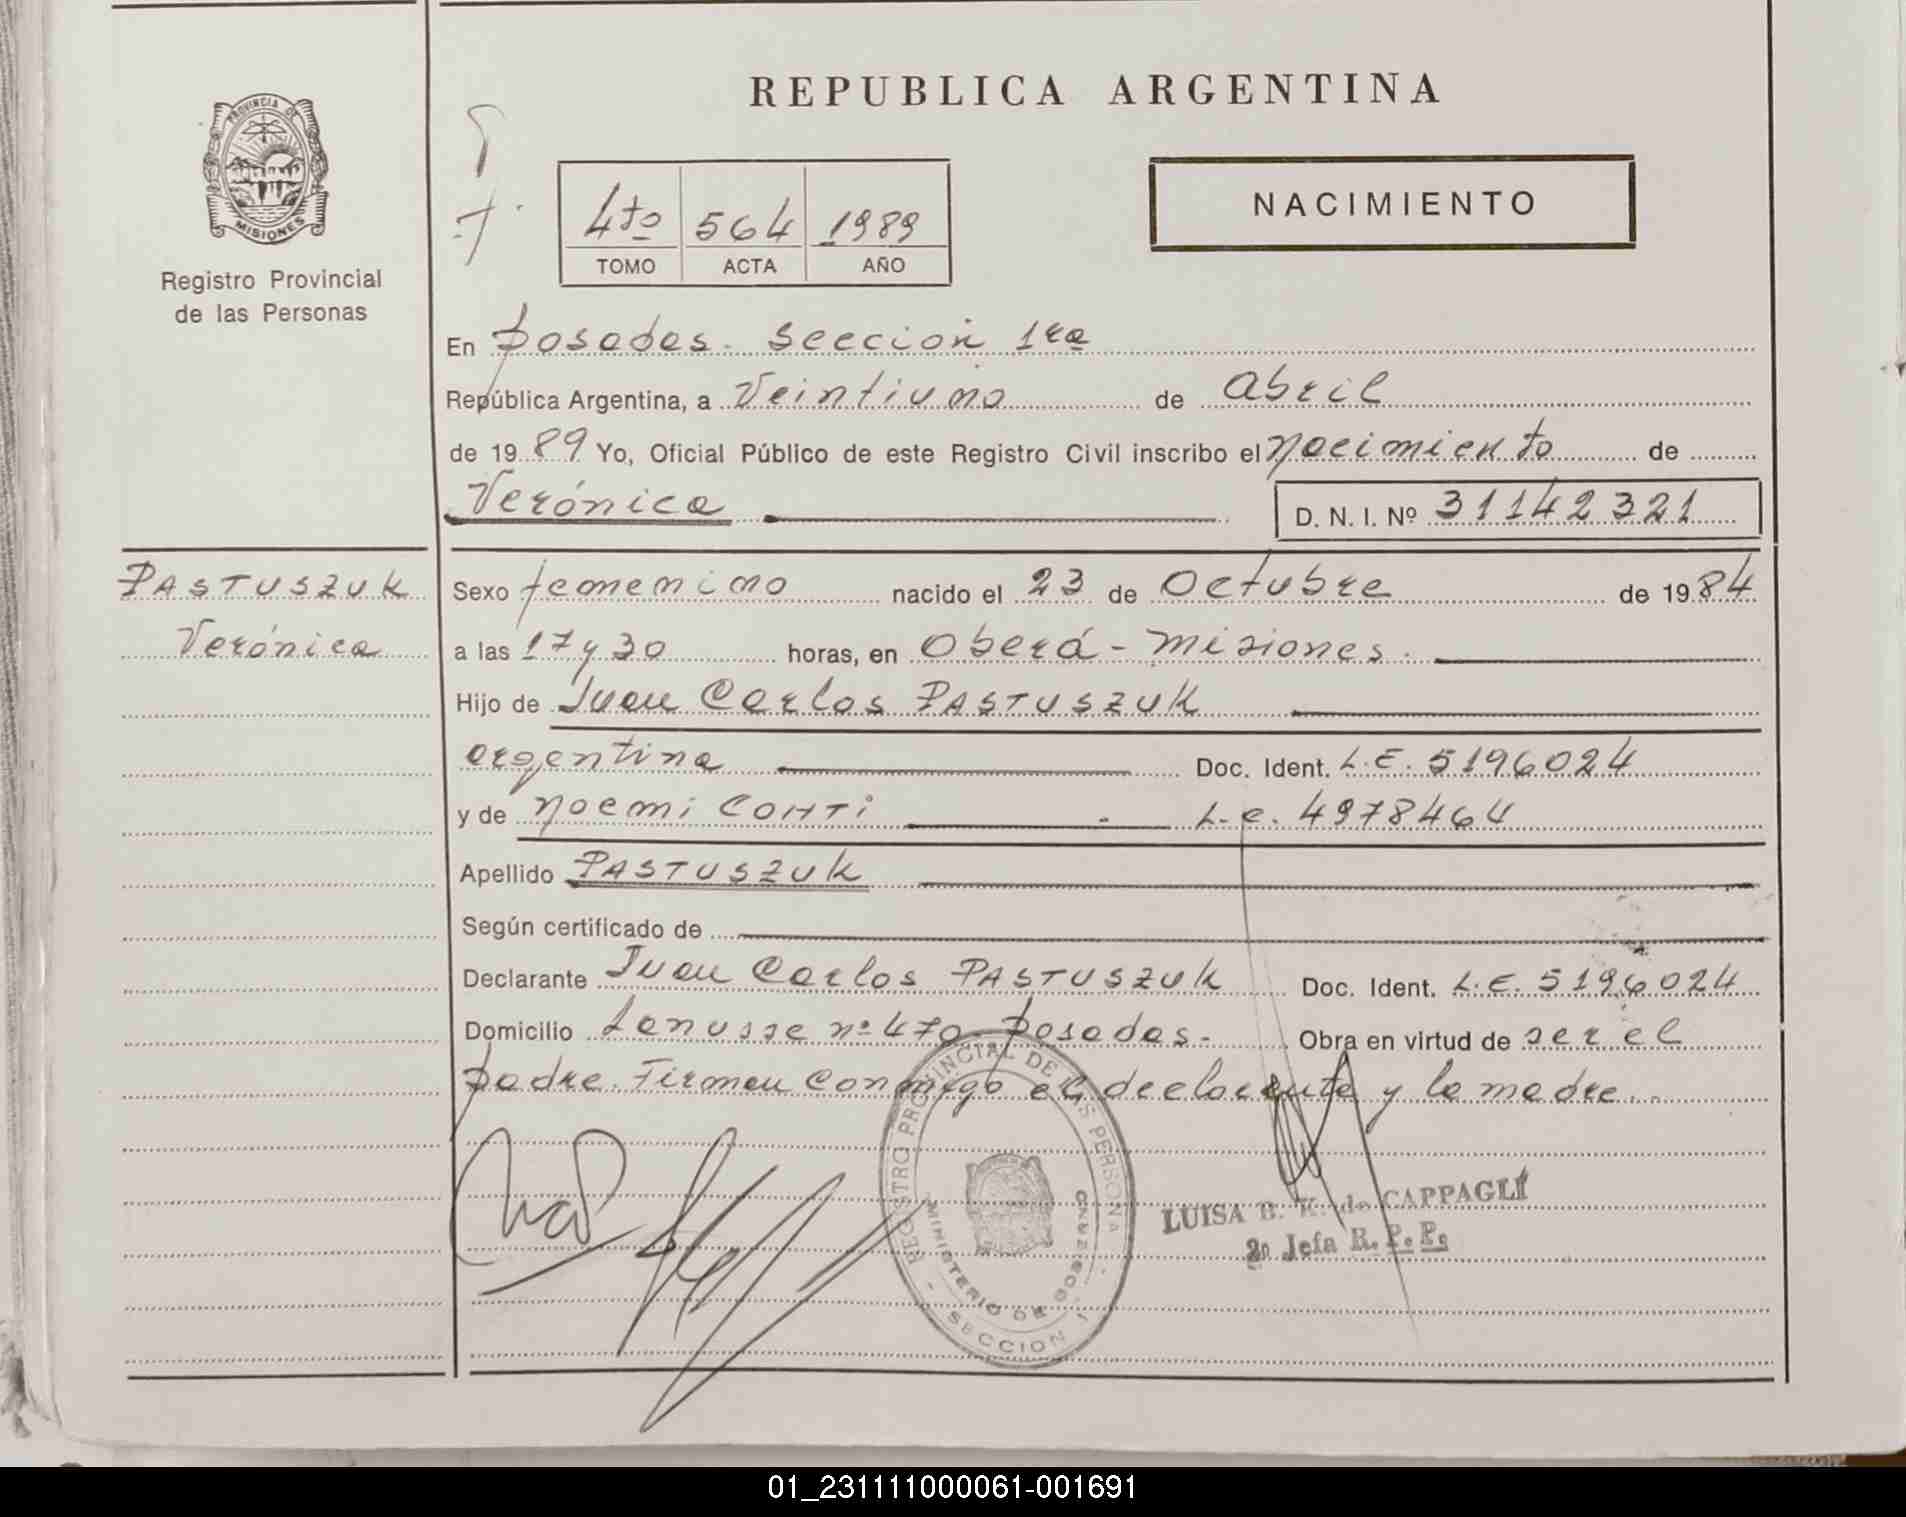 PROVINCIA DE
MISIONES
Registro Provincial
de las Personas
REPUBLICA ARGENTINA
4to 564 1989
TOMO ACTA AÑO
NACIMIENTO
En Posadas. Sección 1ra
República Argentina, a Veintiuno de Abril
de 1989 Yo, Oficial Público de este Registro Civil inscribo el Nacimiento de
Verónica D. N. I. Nº 31142321
PASTUSZUK
Verónica
Sexo femenino nacido el 23 de Octubre de 1984
a las 17 y 30 horas, en Oberá - Misiones.
Hijo de Juan Carlos PASTUSZUK
argentina Doc. Ident. L.E. 5196024
y de Noemi CONTI L.C. 4978464
Apellido PASTUSZUK
Según certificado de
Declarante Juan Carlos PASTUSZUK Doc. Ident. L.E. 5196024
Domicilio Lanusse nº 470 Posadas. Obra en virtud de ser el
padre. Firman conmigo el declarante y la madre.
REGISTRO PROVINCIAL DE LAS PERSONAS
MINISTERIO DE GOBIERNO
SECCION 1
LUISA B. K. de CAPPAGLI
2º Jefa R. P. P.
01_231111000061-001691